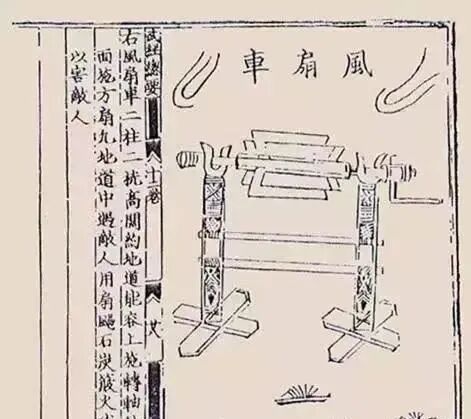 風扇車
武經總要
右風扇車二柱二桄高闊約地道能容上施轉軸
面施方扇凡地道中遇敵人用扇颺石灰簸火
以害敵人